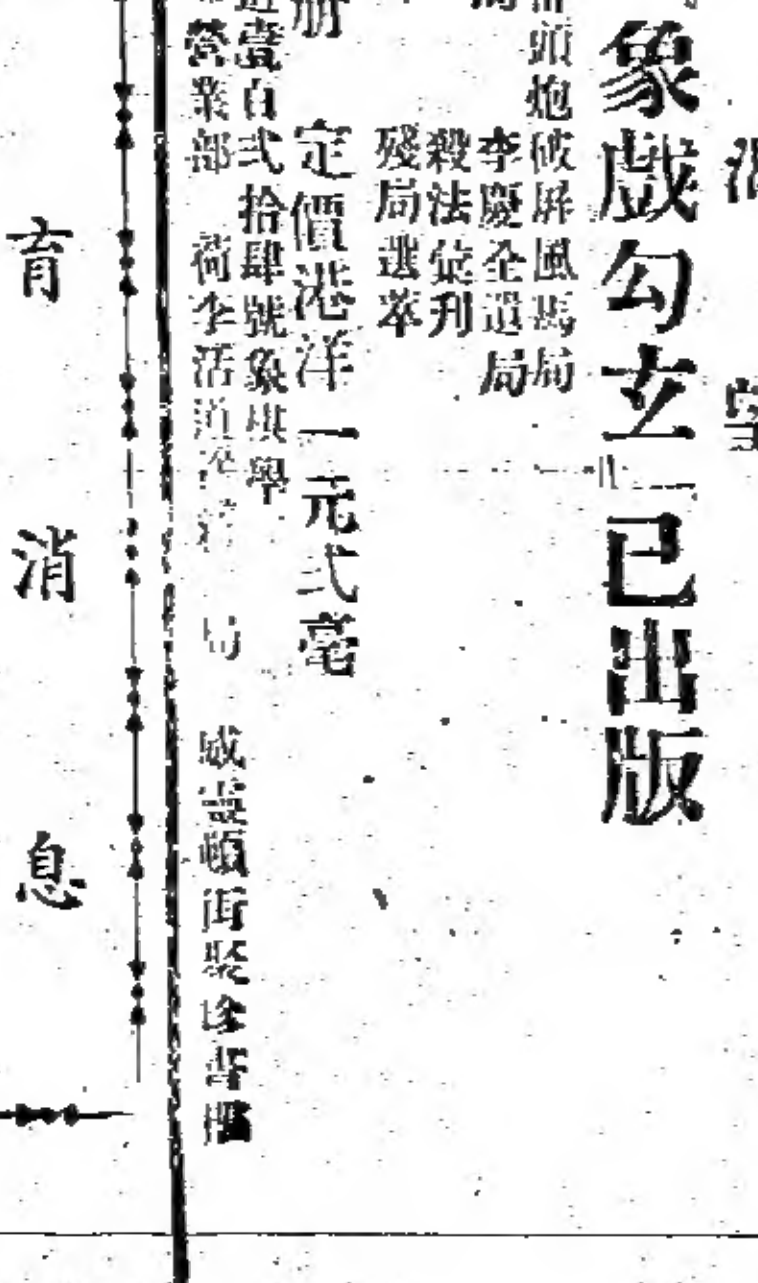 象戲勾玄 已出版
頭炮破屏風馬局
李慶全遺局
殺法彙刊
殘局選萃
定價港洋一元弍毫
壹百弍拾肆號象棋學
營業部 荷李活道 局 威靈頓街聚珍書樓
育消息